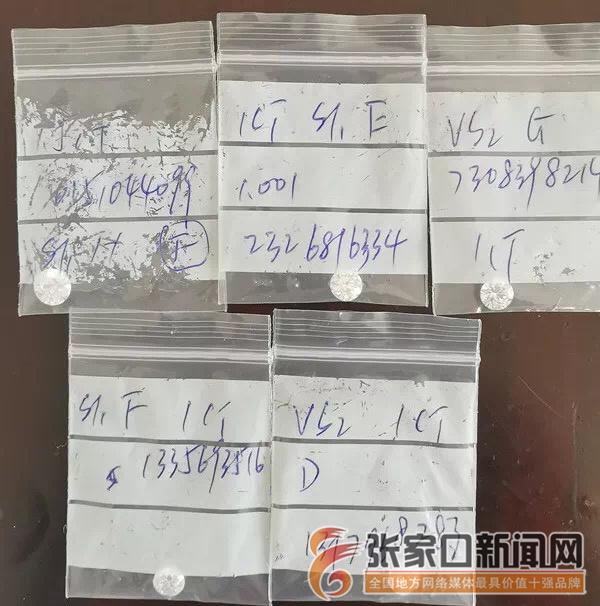 1CT
SI1 H F
1CT SI1 E
1.001
2326816334
VS2 G
7308398214
1CT
SI1 F 1CT
1335693516
VS2 1CT
D
张家口新闻网
全国地方网络媒体最具价值十强品牌